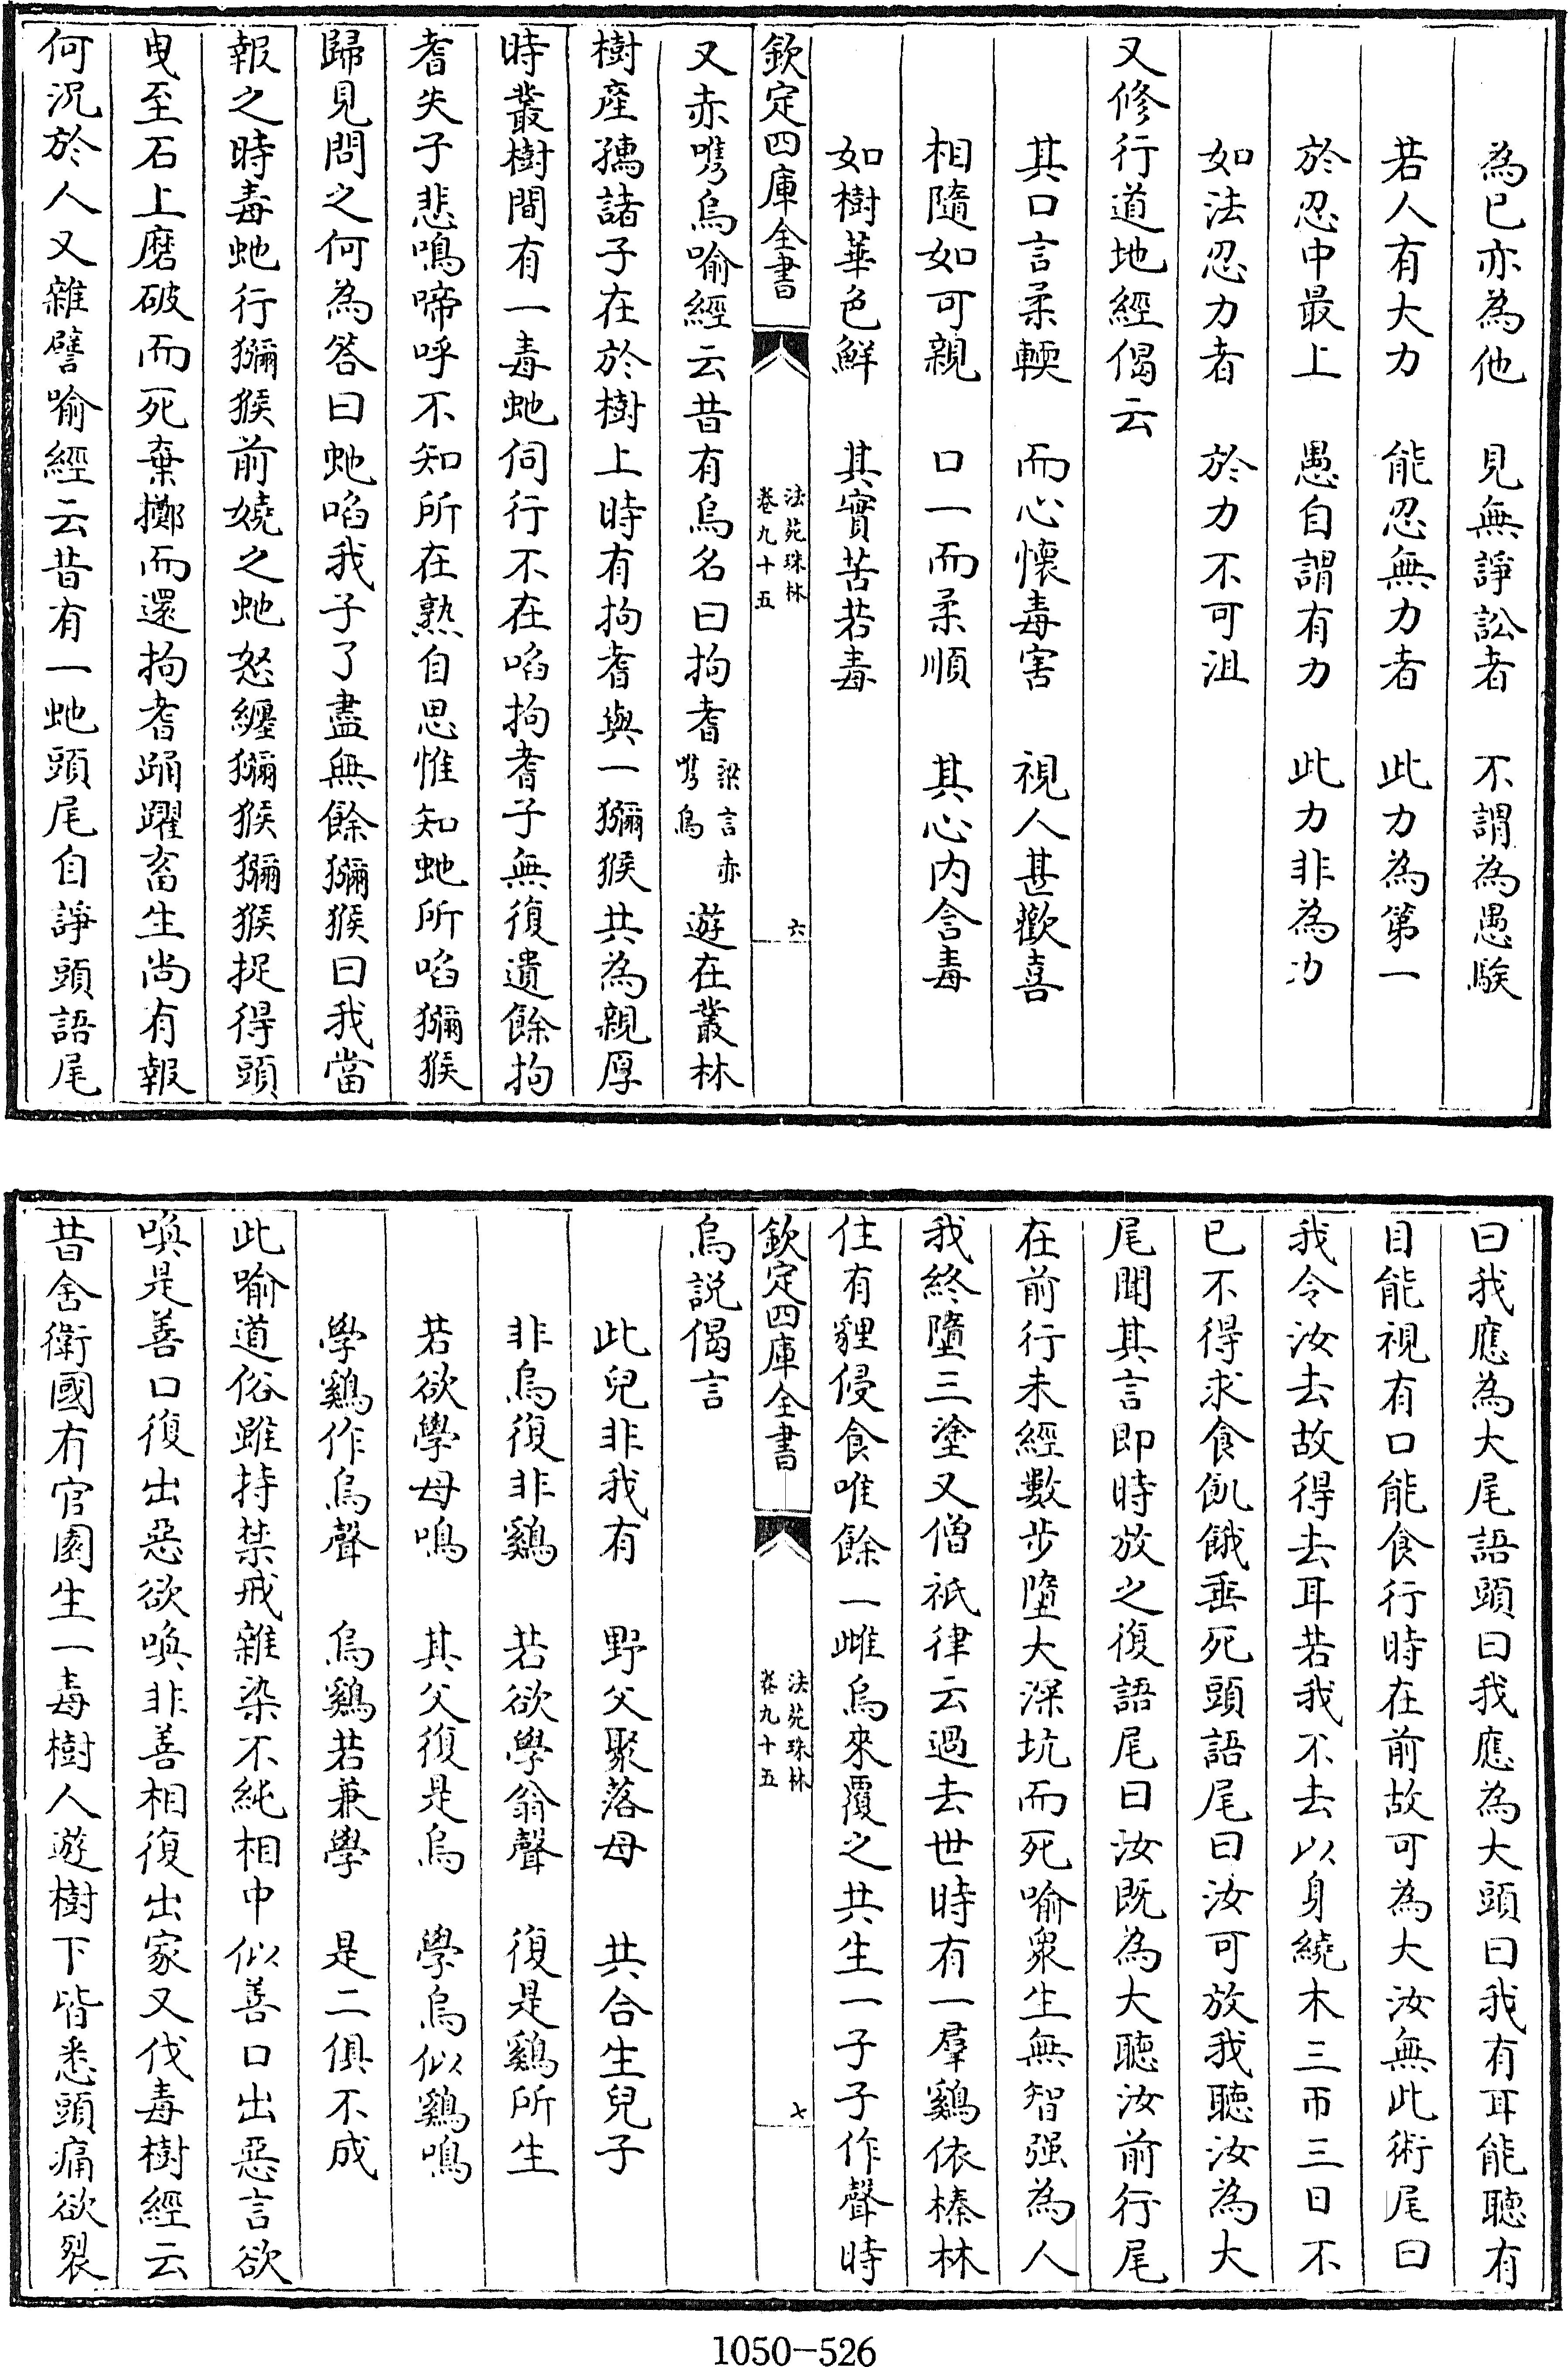 為已亦為他　見無諍訟者　不謂為愚騃
若人有大力　能忍無力者　此力為第一
於忍中最上　愚自謂有力　此力非為力
如法忍力者　於力不可沮
又修行道地經偈云
其口言柔輭　而心懷毒害　視人甚歡喜
相隨如可親　口一而柔順　其心内含毒
如樹華色鮮　其實苦若毒
欽定四庫全書　法苑珠林卷九十五　六
又赤嘴烏喻經云昔有烏名曰拘耆梁言赤嘴烏遊在叢林
樹產孺諸子在於樹上時有拘耆與一獼猴共為親厚
時叢樹間有一毒虵伺行不在啗拘耆子無復遺餘拘
耆失子悲鳴啼呼不知所在熟自思惟知虵所啗獼猴
歸見問之何為答曰虵啗我子了盡無餘獼猴曰我當
報之時毒虵行獼猴前嬈之虵怒纏獼猴獼猴捉得頭
曳至石上磨破而死棄擲而還拘耆踊躍畜生尚有報
何況於人又雜譬喻經云昔有一虵頭尾自諍頭語尾
曰我應為大尾語頭曰我應為大頭曰我有耳能聽有
目能視有口能食行時在前故可為大汝無此術尾曰
我令汝去故得去耳若我不去以身繞木三帀三日不
已不得求食飢餓垂死頭語尾曰汝可放我聽汝為大
尾聞其言即時放之復語尾曰汝既為大聽汝前行尾
在前行未經數步墮大深坑而死喻衆生無智强為人
我終墮三塗又僧祇律云過去世時有一羣鷄依榛林
住有貍侵食唯餘一雌烏來覆之共生一子子作聲時
欽定四庫全書　法苑珠林卷九十五　七
烏説偈言
此兒非我有　野父聚落母　共合生兒子
非烏復非鷄　若欲學翁聲　復是鷄所生
若欲學母鳴　其父復是烏　學烏似鷄鳴
學鷄作烏聲　烏鷄若兼學　是二俱不成
此喻道俗雖持禁戒雜染不純相中似善口出惡言欲
喚是善口復出惡欲喚非善相復出家又伐毒樹經云
昔舍衛國有官園生一毒樹人遊樹下皆悉頭痛欲裂
1050-526